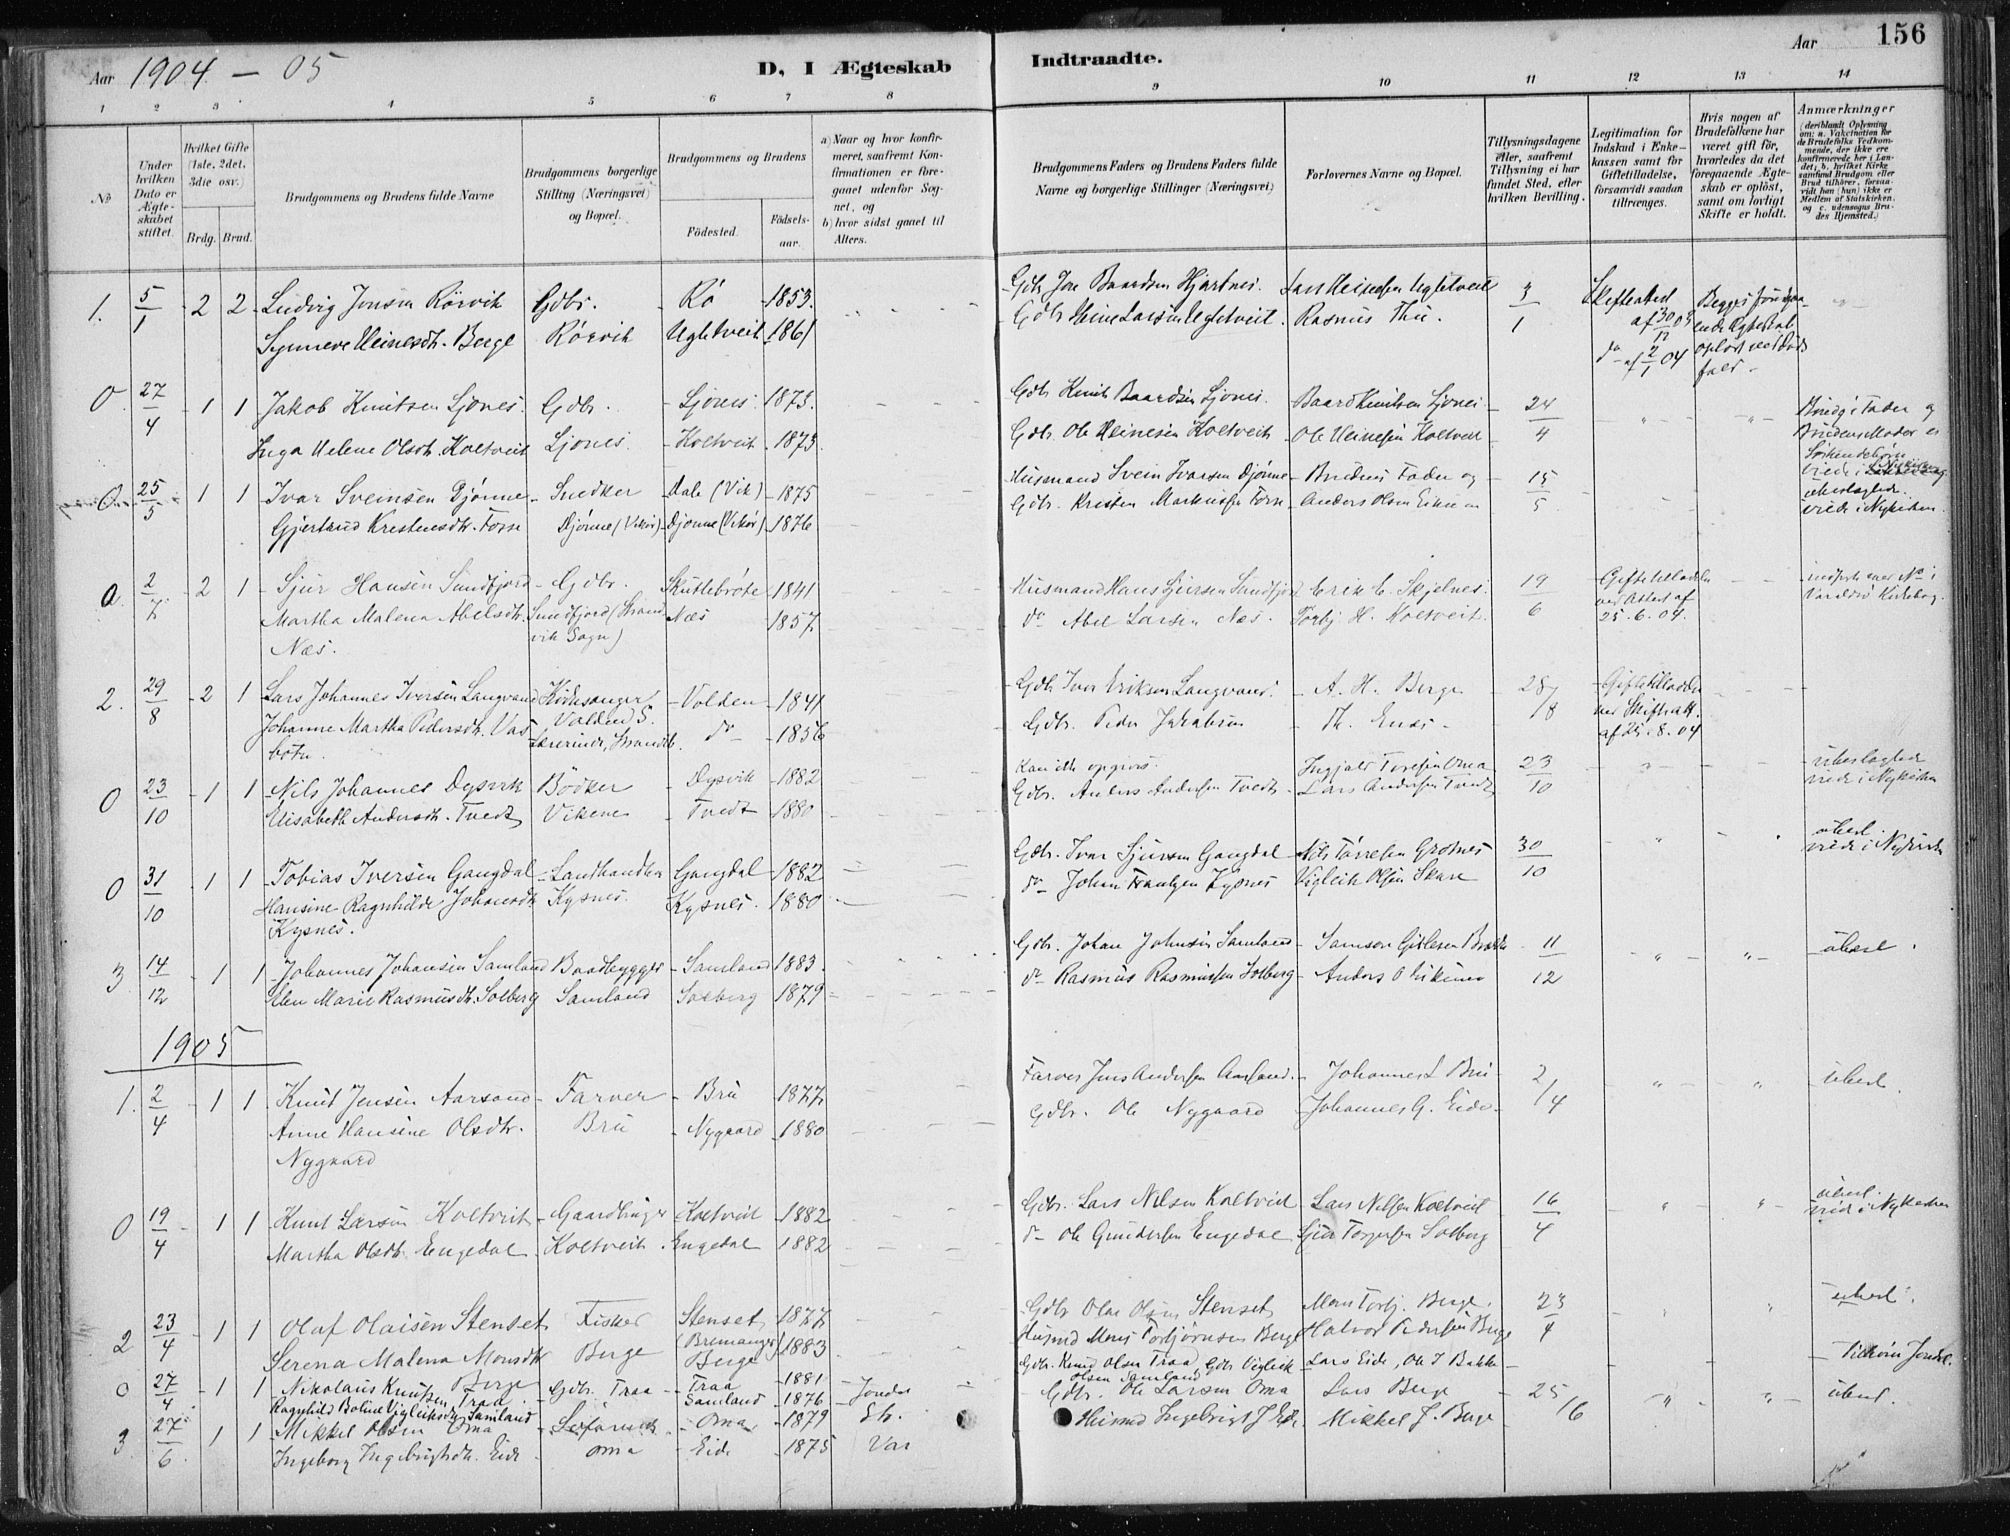 Aar 1904 - 05
D, I Ægteskab
Indtraadte.
Aar 156
1 2 3 4 5 6 7 8 9 10 11 12 13 14
No
Under hvilken Dato er Ægteskabet stiftet.
Hvilket Gifte (1ste, 2det, 3die osv.)
Brdg. Brud.
Brudgommens og Brudens fulde Navne
Brudgommens borgerlige Stilling (Næringsvei) og Bopæl.
Brudgommens og Brudens
Fødested. Fødselsaar.
a) Naar og hvor konfirmeret, saafremt Konfirmationen er foregaaet udenfor Sognet, og
b) hvor sidst gaaet til Alters.
Brudgommens Faders og Brudens Faders fulde Navne og borgerlige Stillinger (Næringsvei)
Forlovernes Navne og Bopæl.
Tillysningsdagene eller, saafremt Tillysning ei har fundet Sted, efter hvilken Bevilling.
Legitimation for Indskud i Enkekassen samt for Giftetilladelse, forsaavidt saadan tiltrænges.
Hvis nogen af Brudefolkene har været gift før, hvorledes da det foregaaende Ægteskab er opløst, samt om lovligt Skifte er holdt.
Anmærkninger
(deriblandt Oplysning om: a. Vakcination for de Brudefolks Vedkommende, der ikke ere konfirmerede her i Landet; b. hvilket Kirkesamfund Brudgom eller Brud tilhører, forsaavidt han (hun) ikke er Medlem af Statskirken, og c. udensogns Brudes Hjemsted.)
1. 5/1 2 2 Ludvig Jonsen Rörvik Gdbr. Rö 1853. Gdbr Jon Baardsen Hjartnes. Lars Heinesen Ugletveit 3/1 Skifteattest af 30/12 03 Begges foregaaende Ægteskab opløst ved Dødsfald
Synneve Heinesdtr. Berge Rörvik Ugletveit 1861 Gdbr Heine Larsen Ugletveit. Rasmus Thu. do af 2/1 04
0 27/4 1 1 Jakob Knutsen Ljones. Gdbr. Ljones 1873. Gdbr Knut Baardsen Ljones. Baard Knutsen Ljones 24/4 Brudg's Fader og Brudens Moder er Søskendebørn
Inga Helene Olsdtr. Koltveit Ljones Koltveit 1873. Gdbr. Ole Heinesen Koltveit Ole Heinesen Koltveit
0 25/5 1 1 Ivar Sveinsen Djönne Snedker Dale (Vik) 1875 Husmand Svein Ivarsen Djönne Brudens Fader og 15/5 ubeslægtede. viede i Nykirken
Gjertrud Kristensdtr. Torse Djönne (Vikör) Djonne (Vikör) 1876 Gdbr. Kristen Markussen Torse Anders Olsen
0. 2/7 2 1 Sjur Hansen Sundfjord Gdbr. Skuttebröte 1841 Husmand Hans Sjursen Sundfjord Erik E. Skjelnes 19/6 Giftetilladelse ved Attest af 25.6.04. indført i Varaldsö Kirkebog.
Martha Malena Abelsdtr. Næs. Sundfjord (Strandvik Sogn) Næs 1857. do Abel Larsen Næs. Torbj. H. Koltveit.
2. 29/8 2 1 Lars Johannes Iversen Langvand Kirkesanger Volden S. Volden 1841 Gdbr Iver Eriksen Langvand. A. H. Berge 28/8 Giftetilladelse ved Skifteatt. af 25.8.04
Johanne Martha Pedersdtr. Vasbotn. Lærerinde, Strandeb. do 1856 Gdbr. Peder Jakobsen Th. Enæs
0 23/10 1 1 Nils Johannes Dysvik Bödker Dysvik 1882 Kan ikke opgives. Ingjald Toresen Oma 23/10 ubeslægtede viede i Nykirken
Elisabeth Andersdtr. Tvedt Vikene Tvedt 1880 Gdbr. Anders Andersen Tvedt Lars Andersen Tvedt
0 31/10 1 1 Tobias Iversen Gangdal Landhandler Gangdal 1882 Gdbr. Ivar Sjursen Gangdal Nils Tørresen Grotnes 30/10 ubesl. viede i Nykirke
Hansine Ragnhilde Johansdtr. Kysnes. Kysnes. Kysnes. 1880 do Johan Frantsen Kysnes Vigleik Olsen Skare
3 14/12 1 1 Johannes Johansen Samland Baadbygger Samland 1883 Gdbr. Johan Johnsen Samland Samson Gislesen 11/12 ubesl.
Elen Marie Rasmusdtr. Solberg Samland Solberg 1879 do Rasmus Rasmussen Solberg Anders
1905
1. 2/4 1 1 Knut Jensen Aarsand Farver Bru 1877. Farver Jens Andersen Aarsand. Johannes L Bru 2/4 ubesl.
Anne Hansine Olsdtr. Nygaard Bru Nygaard 1880 Gdbr. Ole Nygaard Johannes G. Eide
0 19/4 1 1 Knut Larsen Koltveit Gaardbruger Koltveit 1882 Gdbr. Lars Nilsen Koltveit Lars Nilsen Koltveit 16/4 ubesl. viede i Nykirken
Martha Olsdtr. Engedal Koltveit Engedal 1882 do Ole Gundersen Engedal Sjur Torgersen Solberg
2 23/4 1 1 Olaf Olaisen Stenset Fisker Stenset (Bremanger) 1877 Gdbr Olai Olsen Stenset Mons Torbj. Berge. 23/4 ubesl.
Serena Malena Monsdtr Berge Berge Berge 1883 Husmd Mons Torbjørnsen Berge Halvor Pedersen Berge
0 27/4 1 1 Nikolaus Knutsen Traa Gdbr. Traa Traa 1881 Jondal Gdbr. Knud Olsen Traa, Gdbr Vigleik Olsen Samland Lars Eide, Ole J Bakke Jondal.
Ragnhild Boline Vigleiksdtr Samland Samland 1876
3 27/6 1 1 Mikkel Olsen Oma Oma 1879 Gdbr. Ole Larsen Oma Lars Berge 25/6 ubesl.
Ingeborg Ingebrigtsdtr. Eide Oma Eide 1875 Husmd Ingebrigt J Eide. Mikkel J. Berge